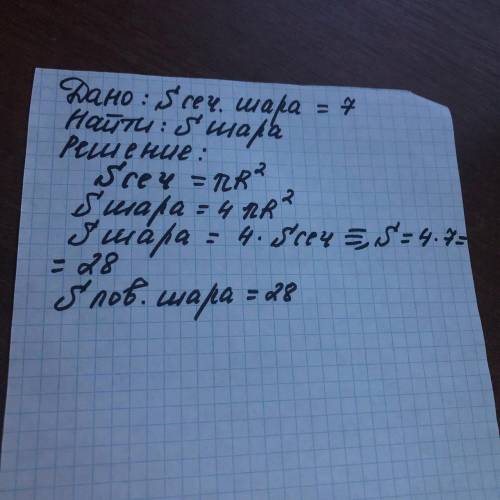 Дано: S сеч. шара = 7
Найти: S шара
Решение:
S сеч = πR²
S шара = 4πR²
S шара = 4 · S сеч =, S = 4 · 7 =
= 28
S пов. шара = 28